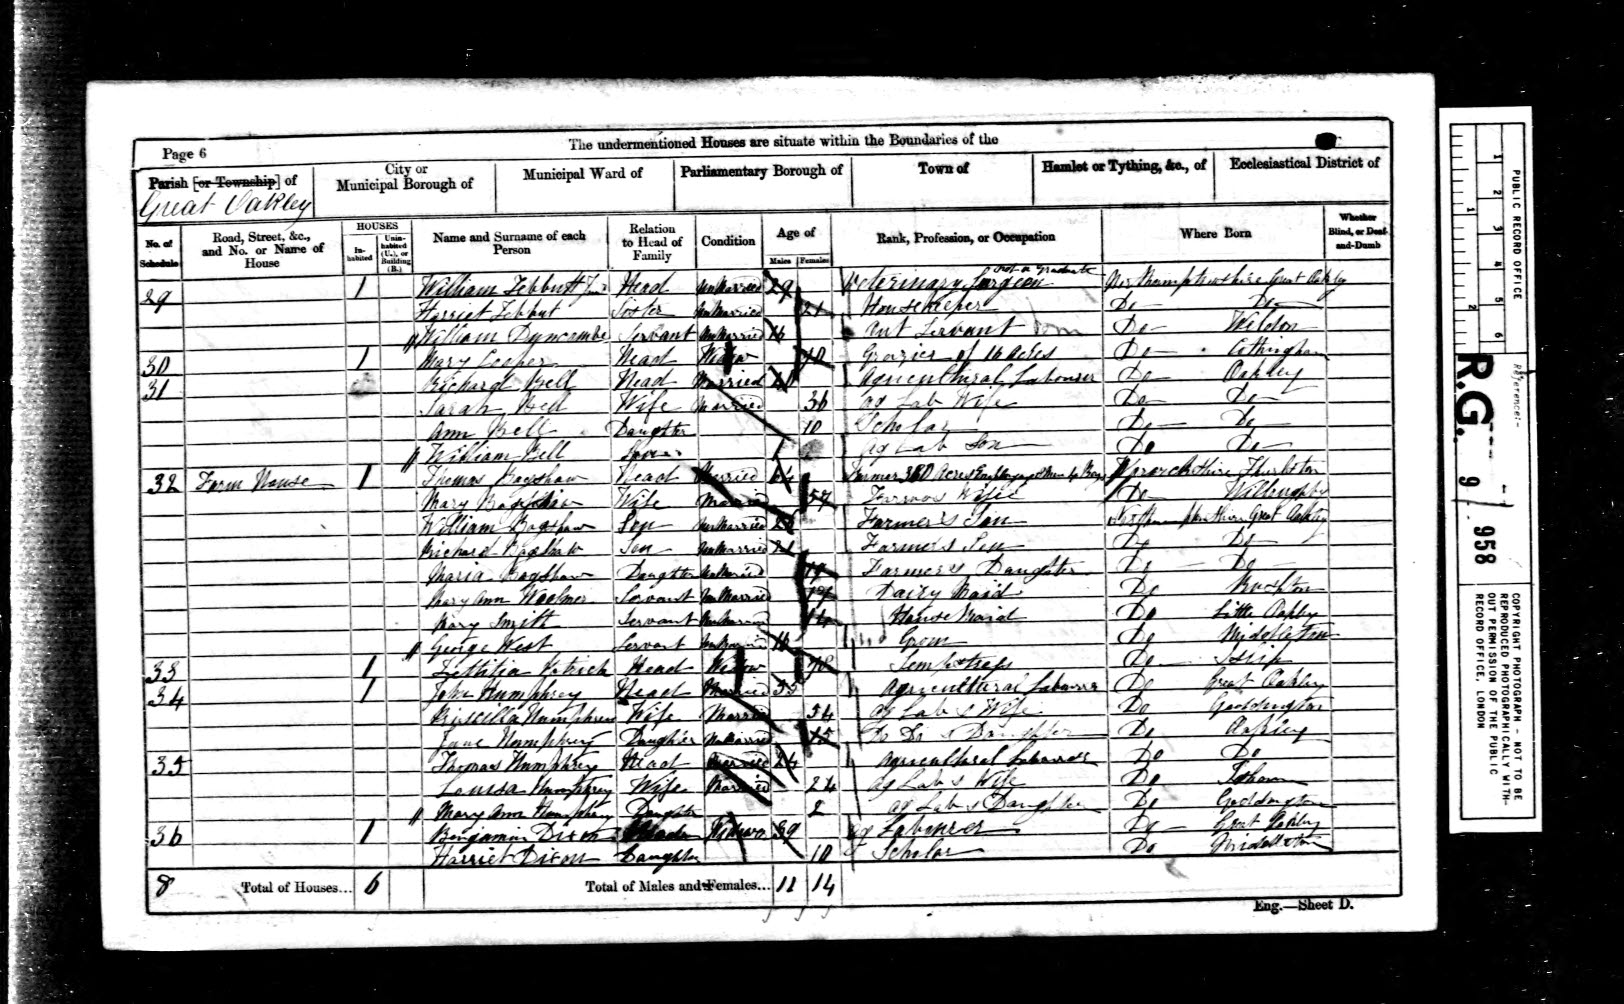 The undermentioned Houses are situate within the Boundaries of the
Page 6
Parish [or Township] of
Great Oakley
City or Municipal Borough of
Municipal Ward of
Parliamentary Borough of
Town of
Hamlet or Tything, &c., of
Ecclesiastical District of
No. of Schedule
Road, Street, &c., and No. or Name of House
HOUSES
In-habited
Unin-habited (U.), or Building (B.)
Name and Surname of each Person
Relation to Head of Family
Condition
Age of
Males
Females
Rank, Profession, or Occupation
Where Born
Whether Blind, or Deaf-and-Dumb
29 1 William Tebbutt Junr Head Unmarried 29 Veterinary Surgeon not a Graduate Northamptonshire Great Oakley
Harriet Tebbut Sister Unmarried 21 Housekeeper Do Do
William Duncombe Servant Unmarried 16 Servant Do Weldon
30 1 Mary Head Widow Grazier of 16 acres Do Cottingham
31 Richard Bell Head Married 40 Agricultural Labourer Do Oakley
Sarah Bell Wife Married 36 Ag Lab Wife Do Do
Ann Bell Daughter 10 Scholar Do Do
William Bell 1 Ag Lab Son Do Do
32 Farm House 1 Thomas Bagshaw Head Married 64 Farmer Acres Warwickshire Thurlaston
Mary Bagshaw Wife Married 57 Farmers Wife Do Willoughby
William Bagshaw Son Unmarried Farmer's Son Northamptonshire Great Oakley
Richard Bagshaw Son Unmarried 21 Farmers Son Do Do
Maria Bagshaw Daughter Unmarried 19 Farmer's Daughter Do Do
Mary Ann Servant Unmarried 19 Dairy Maid Do Rushton
Mary Smith Servant Unmarried 14 House Maid Do Little Oakley
George West Servant Unmarried 16 Groom Do Middleton
33 1 Head Widow 78 Sempstress Do Islip
34 1 John Humphrey Head Married 55 Agricultural Labourer Do Great Oakley
Priscilla Humphrey Wife Married 54 Ag Lab s Wife Do Geddington
Jane Humphrey Daughter Unmarried 15 Do Do s Daughter Do Oakley
35 Thomas Humphrey Head Married 24 Agricultural Labourer Do Do
Louisa Humphrey Wife Married 24 Ag Lab s Wife Do Isham
Mary Ann Humphrey Daughter 2 Ag Lab s Daughter Do Geddington
36 1 Benjamin Dixon Head Widwr 39 Ag Labourer Do Great Oakley
Harriet Dixon Daughter 10 Scholar Do Middleton
8 Total of Houses... 6 Total of Males and Females... 11 14
Eng.—Sheet D.
PUBLIC RECORD OFFICE
1 2 3 4 5 6
1 2
Reference:-
R.G. 9 / 958
COPYRIGHT PHOTOGRAPH - NOT TO BE REPRODUCED PHOTOGRAPHICALLY WITH-OUT PERMISSION OF THE PUBLIC RECORD OFFICE, LONDON